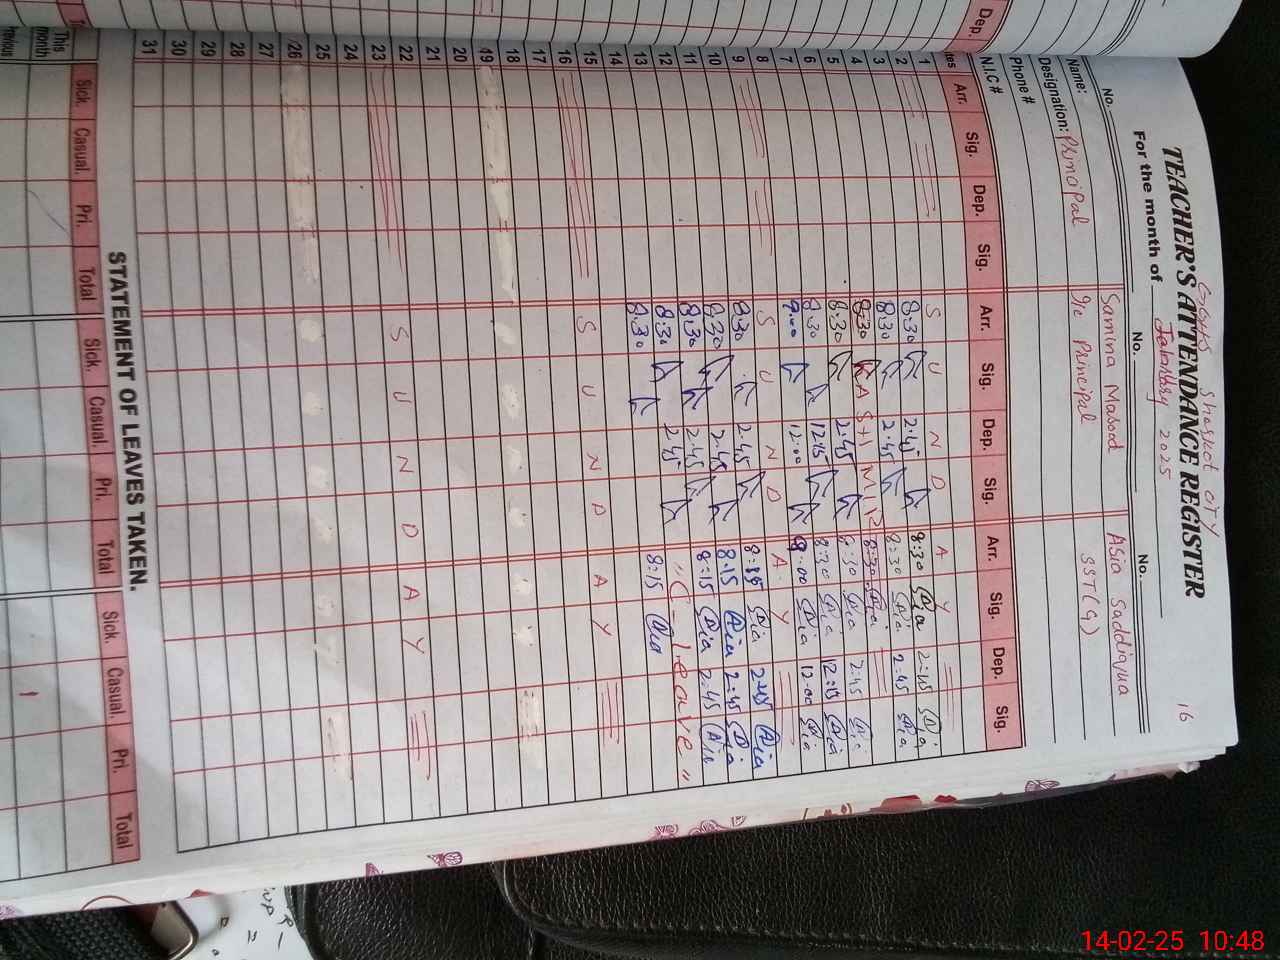 GGHS Shorkot city
TEACHER'S ATTENDANCE REGISTER 16
For the month of 2025
No. No. No.
Name: Samina Masood Asia Saddiqua
Designation: Principal I/c Principal SST(G)
Phone #
N.I.C #
Dep.
Arr. Sig. Dep. Sig. Arr. Sig. Dep. Sig. Arr. Sig. Dep. Sig.
1
2 S U N D A Y
3 8:30 2.45 8:30 Asia 2:45 Asia
4 8:30 2.45 8:30 Asia 2:45 Asia
5 8:30 KASHMIR 8:30 Asia
6 8.30 2.45 8:30 Asia 2:45 Asia
7 8.30 12:15 8:30 Asia 12:15 Asia
8 9.00 12:00 9:00 Asia 12:00 Asia
9 S U N D A Y
10 8.30 2.45 8:15 Asia 2:45 Asia
11 8:30 2.45 8.15 Asia 2:45 Asia
12 8:30 2.45 8:15 Asia 2:45 Asia
13 8:30 2.45 " C - Leave "
8.30 8:15 Asia
15
16 S U N D A Y
17
18
19
20
21
22
23 S U N D A Y
24
25
26
27
28
29
30
31
STATEMENT OF LEAVES TAKEN.
Sick. Casual. Pri. Total Sick. Casual. Pri. Total Sick. Casual. Pri. Total
This month
Previous 1
14-02-25 10:48